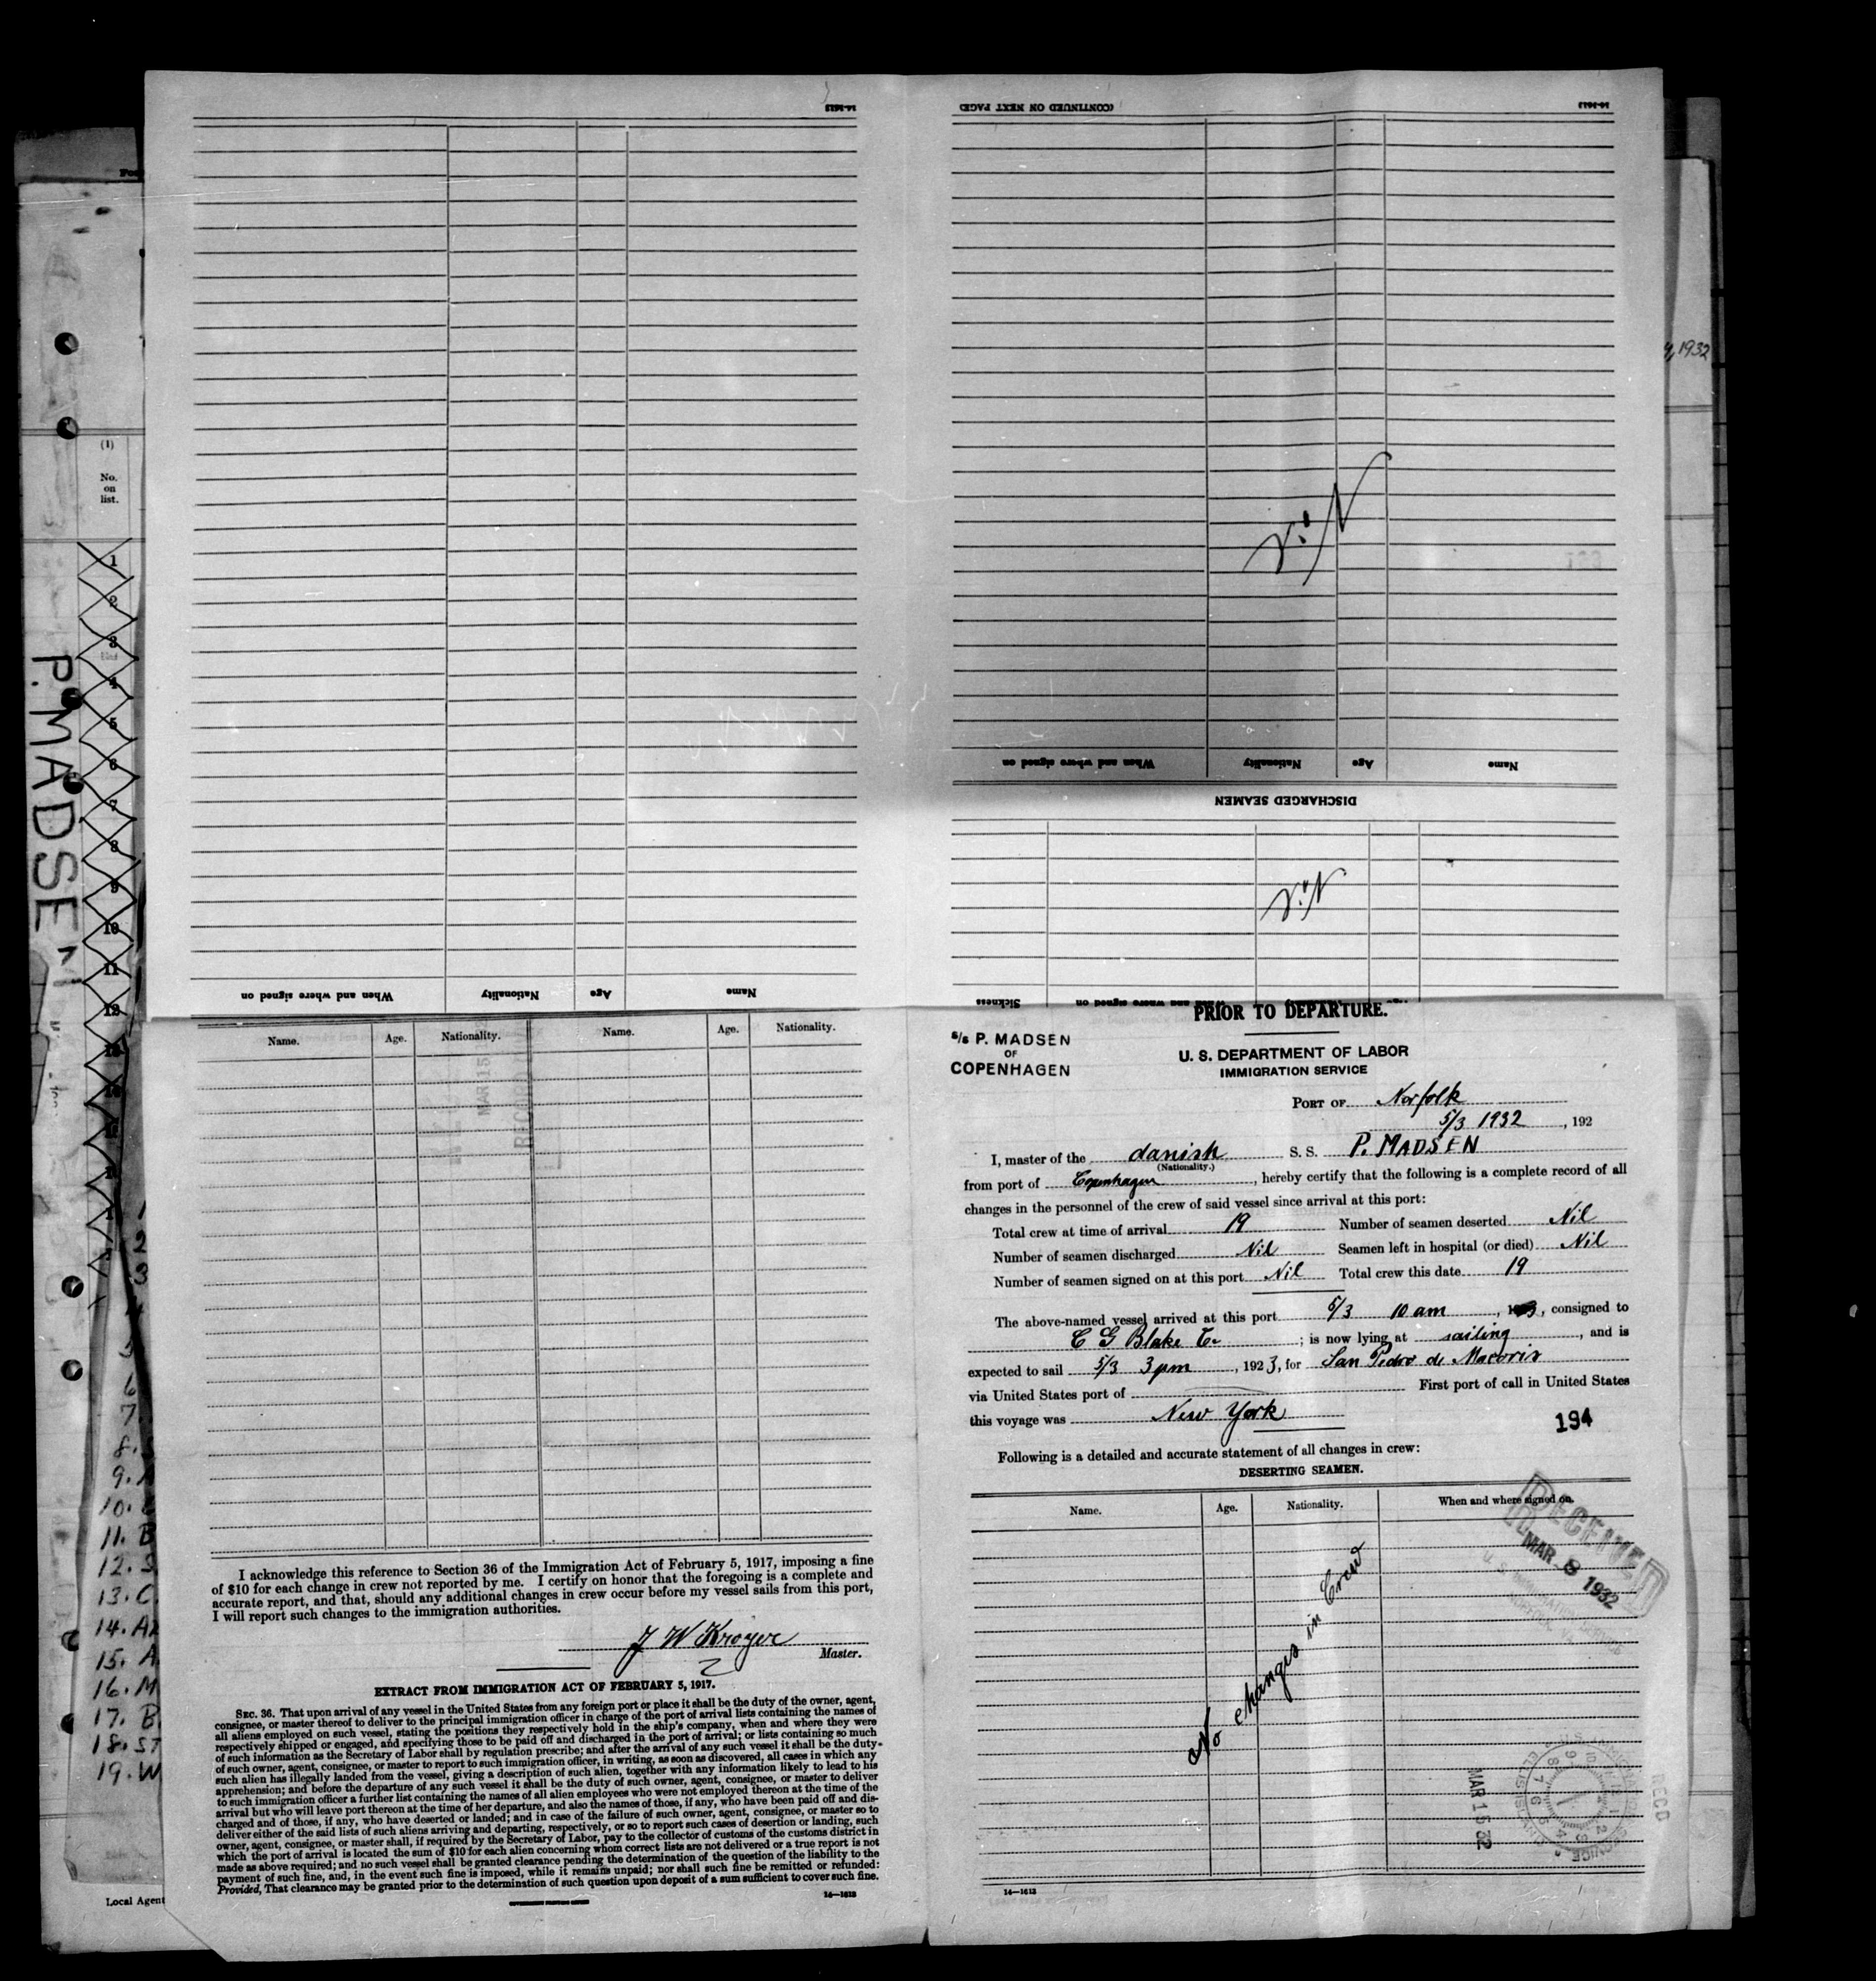 14-1613
(CONTINUED ON NEXT PAGE)
14-1613
For
, 1932
(1)
No.
on
list.
1
2
3
4
5
6
7
8
9
10
11
12
P. MADSEN
When and where signed on
Nationality
Age
Name
DISCHARGED SEAMEN
Sickness
When and where signed on
Nationality
Age
When and where signed on
Nationality
Age
Name
Name.
Age.
Nationality.
Name.
Age.
Nationality.
MAR 15
PRIOR TO DEPARTURE.
S/S P. MADSEN
OF
COPENHAGEN
U. S. DEPARTMENT OF LABOR
IMMIGRATION SERVICE
PORT OF Norfolk
5/3 1932, 192
I, master of the danish S. S. P. MADSEN
(Nationality.)
from port of Copenhagen, hereby certify that the following is a complete record of all
changes in the personnel of the crew of said vessel since arrival at this port:
Total crew at time of arrival 19 Number of seamen deserted Nil
Number of seamen discharged Nil Seamen left in hospital (or died) Nil
Number of seamen signed on at this port Nil Total crew this date 19
The above-named vessel arrived at this port 5/3 10 am, consigned to
C G Blake Co; is now lying at sailing, and is
expected to sail 5/3 3 pm, 1923, for San Pedro de Macoris
via United States port of First port of call in United States
this voyage was New York
194
Following is a detailed and accurate statement of all changes in crew:
DESERTING SEAMEN.
Name.
Age.
Nationality.
When and where signed on.
No changes in Crew
RECEIVED
MAR 8 1932
MAR 15 32
REC'D
14—1613
6
7.
8.
9.
10.
11. B
12. S
13. C.
14. A
15. A
16. M
17. B.
18. ST
19. W
I acknowledge this reference to Section 36 of the Immigration Act of February 5, 1917, imposing a fine
of $10 for each change in crew not reported by me. I certify on honor that the foregoing is a complete and
accurate report, and that, should any additional changes in crew occur before my vessel sails from this port,
I will report such changes to the immigration authorities.
J W Kroyer
Master.
EXTRACT FROM IMMIGRATION ACT OF FEBRUARY 5, 1917.
SEC. 36. That upon arrival of any vessel in the United States from any foreign port or place it shall be the duty of the owner, agent,
consignee, or master thereof to deliver to the principal immigration officer in charge of the port of arrival lists containing the names of
all aliens employed on such vessel, stating the positions they respectively hold in the ship's company, when and where they were
respectively shipped or engaged, and specifying those to be paid off and discharged in the port of arrival; or lists containing so much
of such information as the Secretary of Labor shall by regulation prescribe; and after the arrival of any such vessel it shall be the duty
of such owner, agent, consignee, or master to report to such immigration officer, in writing, as soon as discovered, all cases in which any
such alien has illegally landed from the vessel, giving a description of such alien, together with any information likely to lead to his
apprehension; and before the departure of any such vessel it shall be the duty of such owner, agent, consignee, or master to deliver
to such immigration officer a further list containing the names of all alien employees who were not employed thereon at the time of the
arrival but who will leave port thereon at the time of her departure, and also the names of those, if any, who have been paid off and dis-
charged and of those, if any, who have deserted or landed; and in case of the failure of such owner, agent, consignee, or master so to
deliver either of the said lists of such aliens arriving and departing, respectively, or so to report such cases of desertion or landing, such
owner, agent, consignee, or master shall, if required by the Secretary of Labor, pay to the collector of customs of the customs district in
which the port of arrival is located the sum of $10 for each alien concerning whom correct lists are not delivered or a true report is not
made as above required; and no such vessel shall be granted clearance pending the determination of the question of the liability to the
payment of such fine, and, in the event such fine is imposed, while it remains unpaid; nor shall such fine be remitted or refunded:
Provided, That clearance may be granted prior to the determination of such question upon deposit of a sum sufficient to cover such fine.
14—1613
Local Agent